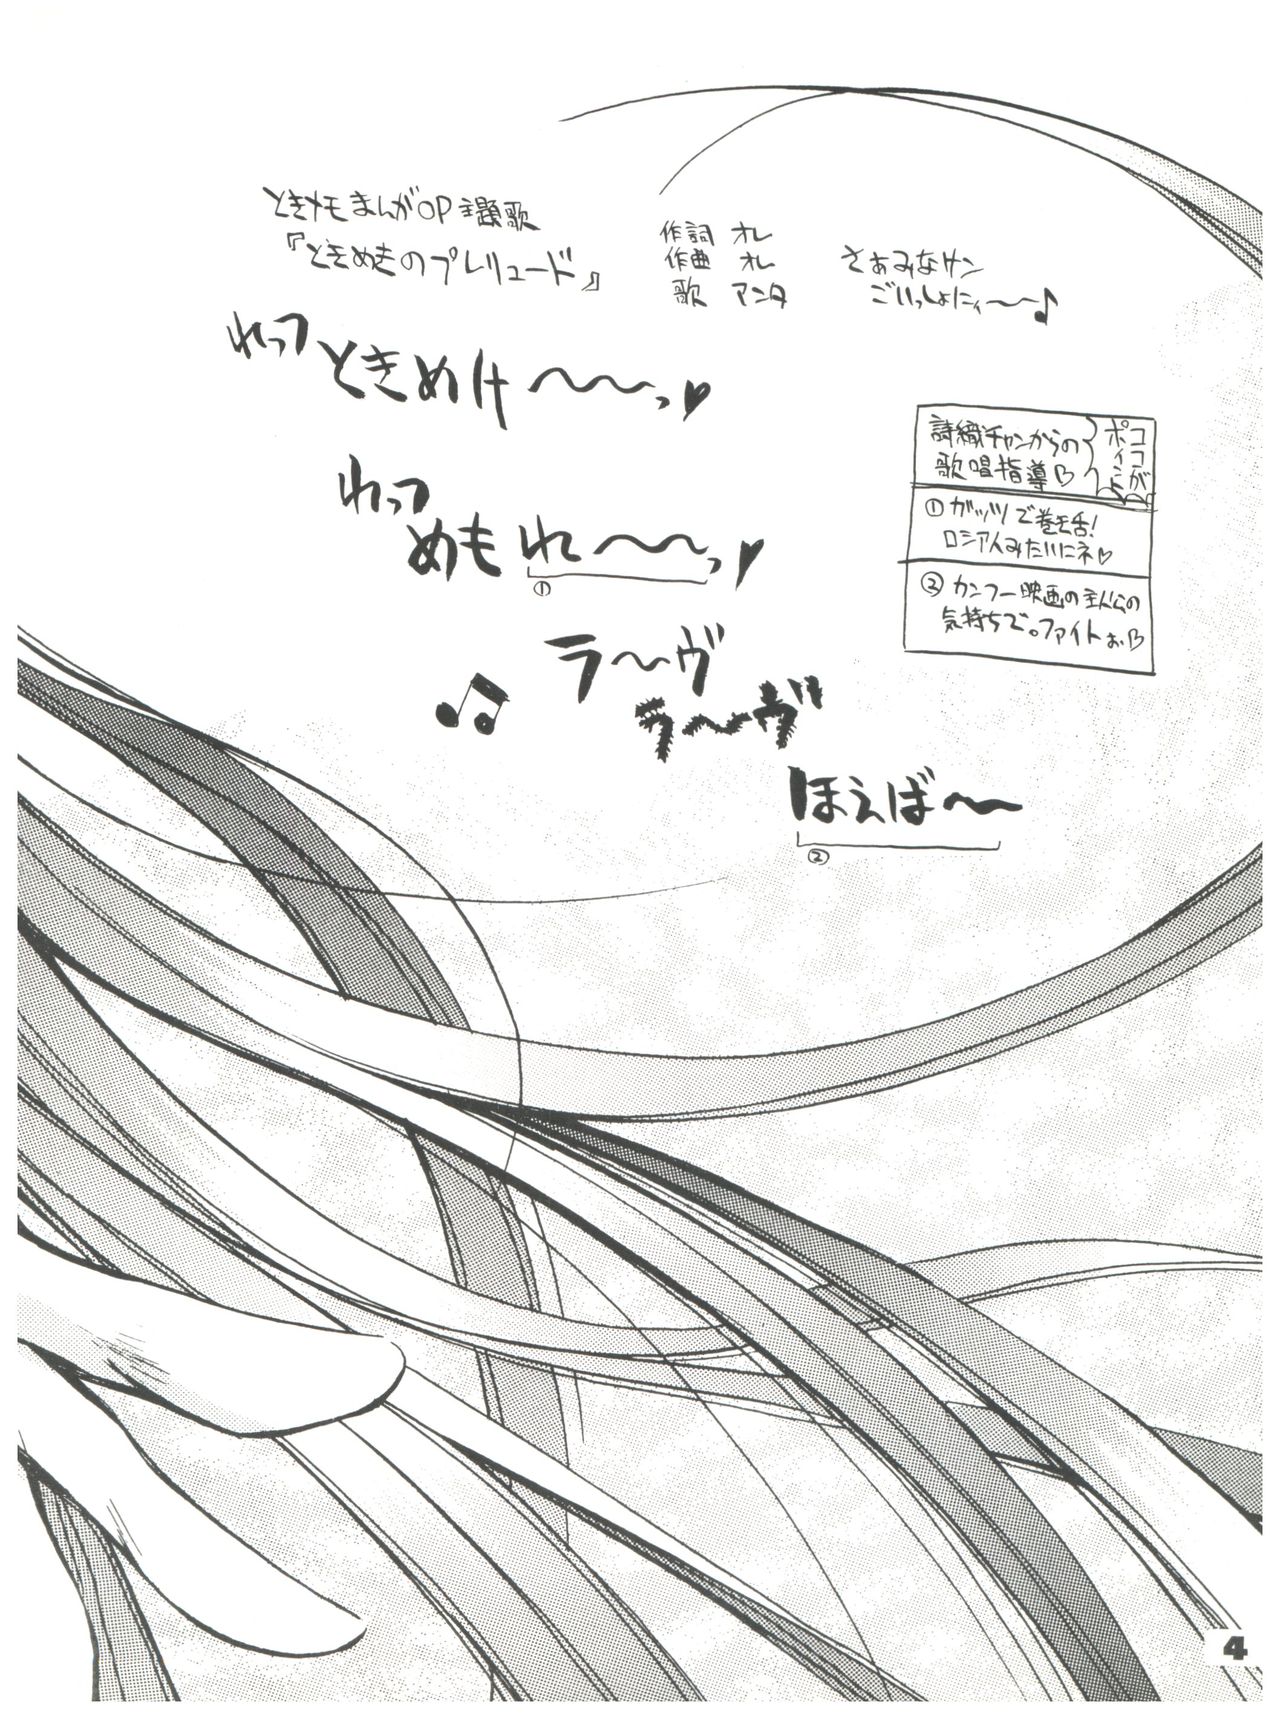 ときメモまんがOP主題歌
『ときめきのプレリュード』
作詞 オレ
作曲 オレ
歌 アンタ
さぁみなサン
ごいっしょにィ〜〜♪
れっつ
ときめけ〜〜〜っ♥
れっつ
めもれ〜〜〜っ♥
①
♫
ラ〜〜ヴ
ラ〜〜ヴ
ほえば〜〜
②
詩織チャンからの
歌唱指導♡
ココが
ポイント
①ガッツで巻き舌!
ロシア人みたいにネ♡
②カンフー映画の主人公の
気持ちで。ファイトぉ♡
4